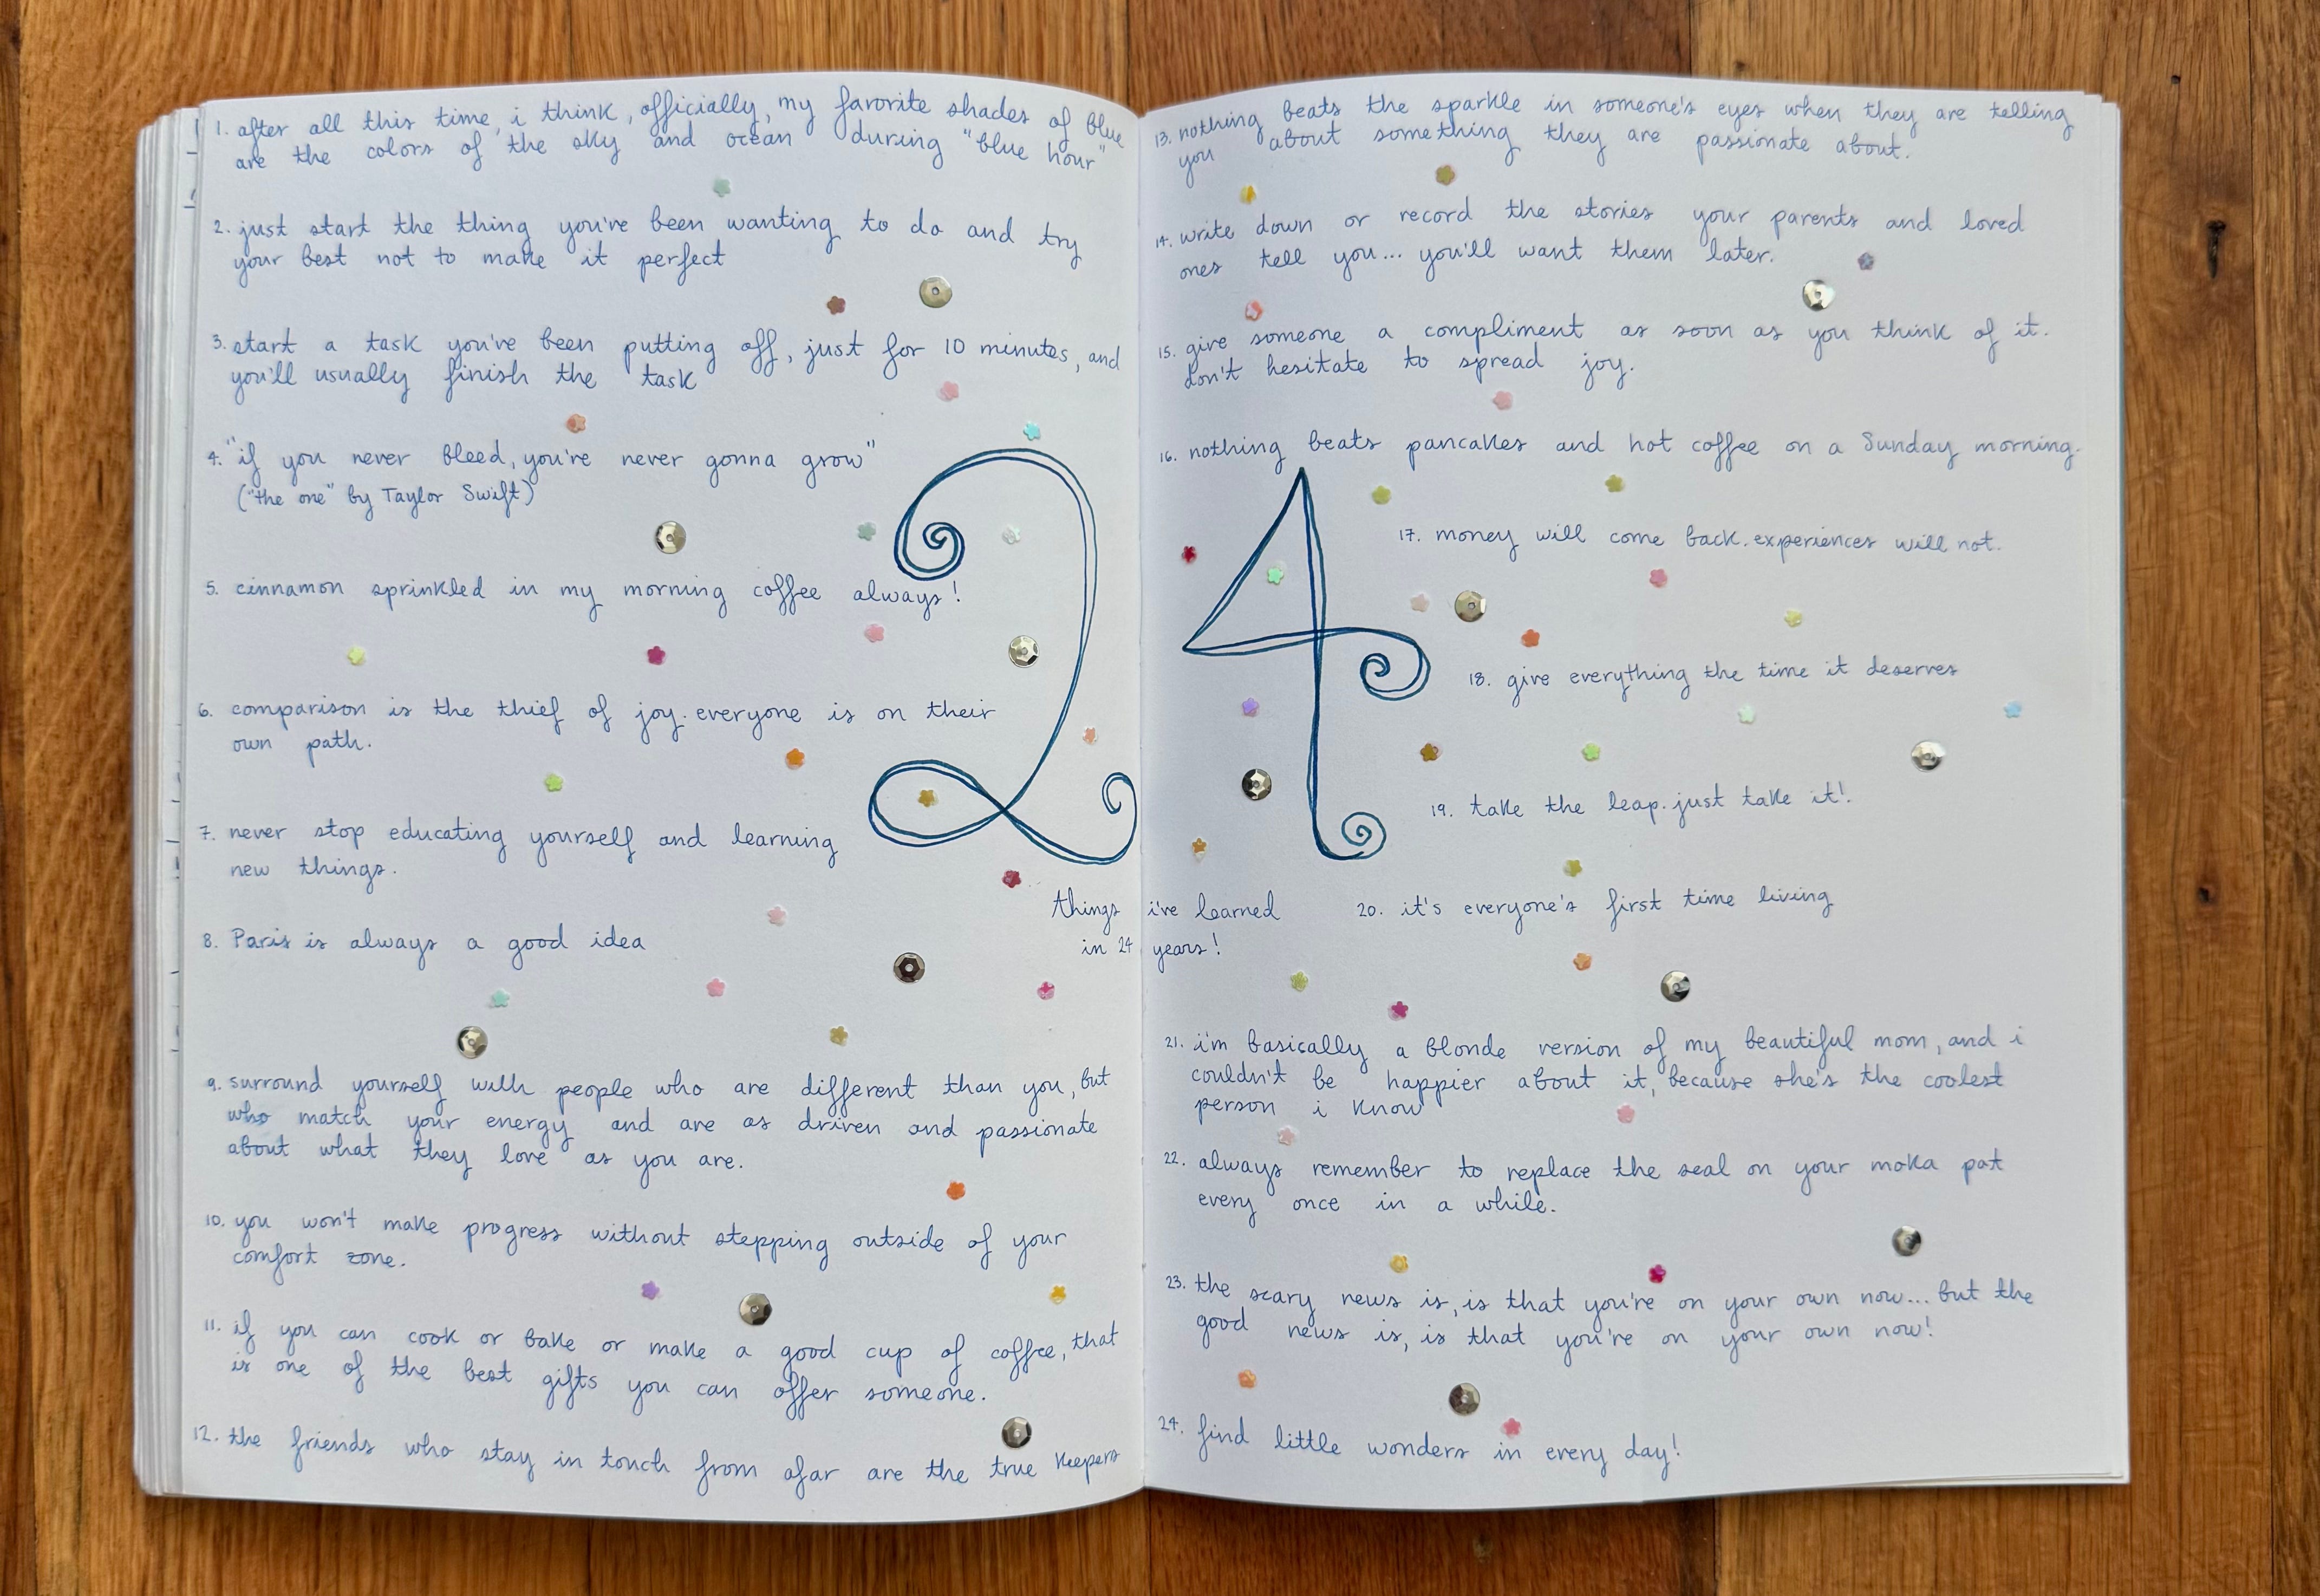 1. after all this time, i think, officially, my favorite shades of blue
are the colors of the sky and ocean during "blue hour"
2. just start the thing you've been wanting to do and try
your best not to make it perfect
3. start a task you've been putting off, just for 10 minutes, and
you'll usually finish the task
4. "if you never bleed, you're never gonna grow"
("the one" by Taylor Swift)
5. cinnamon sprinkled in my morning coffee always!
6. comparison is the thief of joy. everyone is on their
own path.
7. never stop educating yourself and learning
new things.
8. Paris is always a good idea
9. surround yourself with people who are different than you, but
who match your energy and are as driven and passionate
about what they love as you are.
10. you won't make progress without stepping outside of your
comfort zone.
11. if you can cook or bake or make a good cup of coffee, that
is one of the best gifts you can offer someone.
12. the friends who stay in touch from afar are the true keepers
24
things i've learned
in 24 years!
13. nothing beats the sparkle in someone's eyes when they are telling
you about something they are passionate about.
14. write down or record the stories your parents and loved
ones tell you... you'll want them later.
15. give someone a compliment as soon as you think of it.
don't hesitate to spread joy.
16. nothing beats pancakes and hot coffee on a Sunday morning.
17. money will come back. experiences will not.
18. give everything the time it deserves
19. take the leap. just take it!
20. it's everyone's first time living
21. i'm basically a blonde version of my beautiful mom, and i
couldn't be happier about it, because she's the coolest
person i know
22. always remember to replace the seal on your moka pot
every once in a while.
23. the scary news is, is that you're on your own now... but the
good news is, is that you're on your own now!
24. find little wonders in every day!